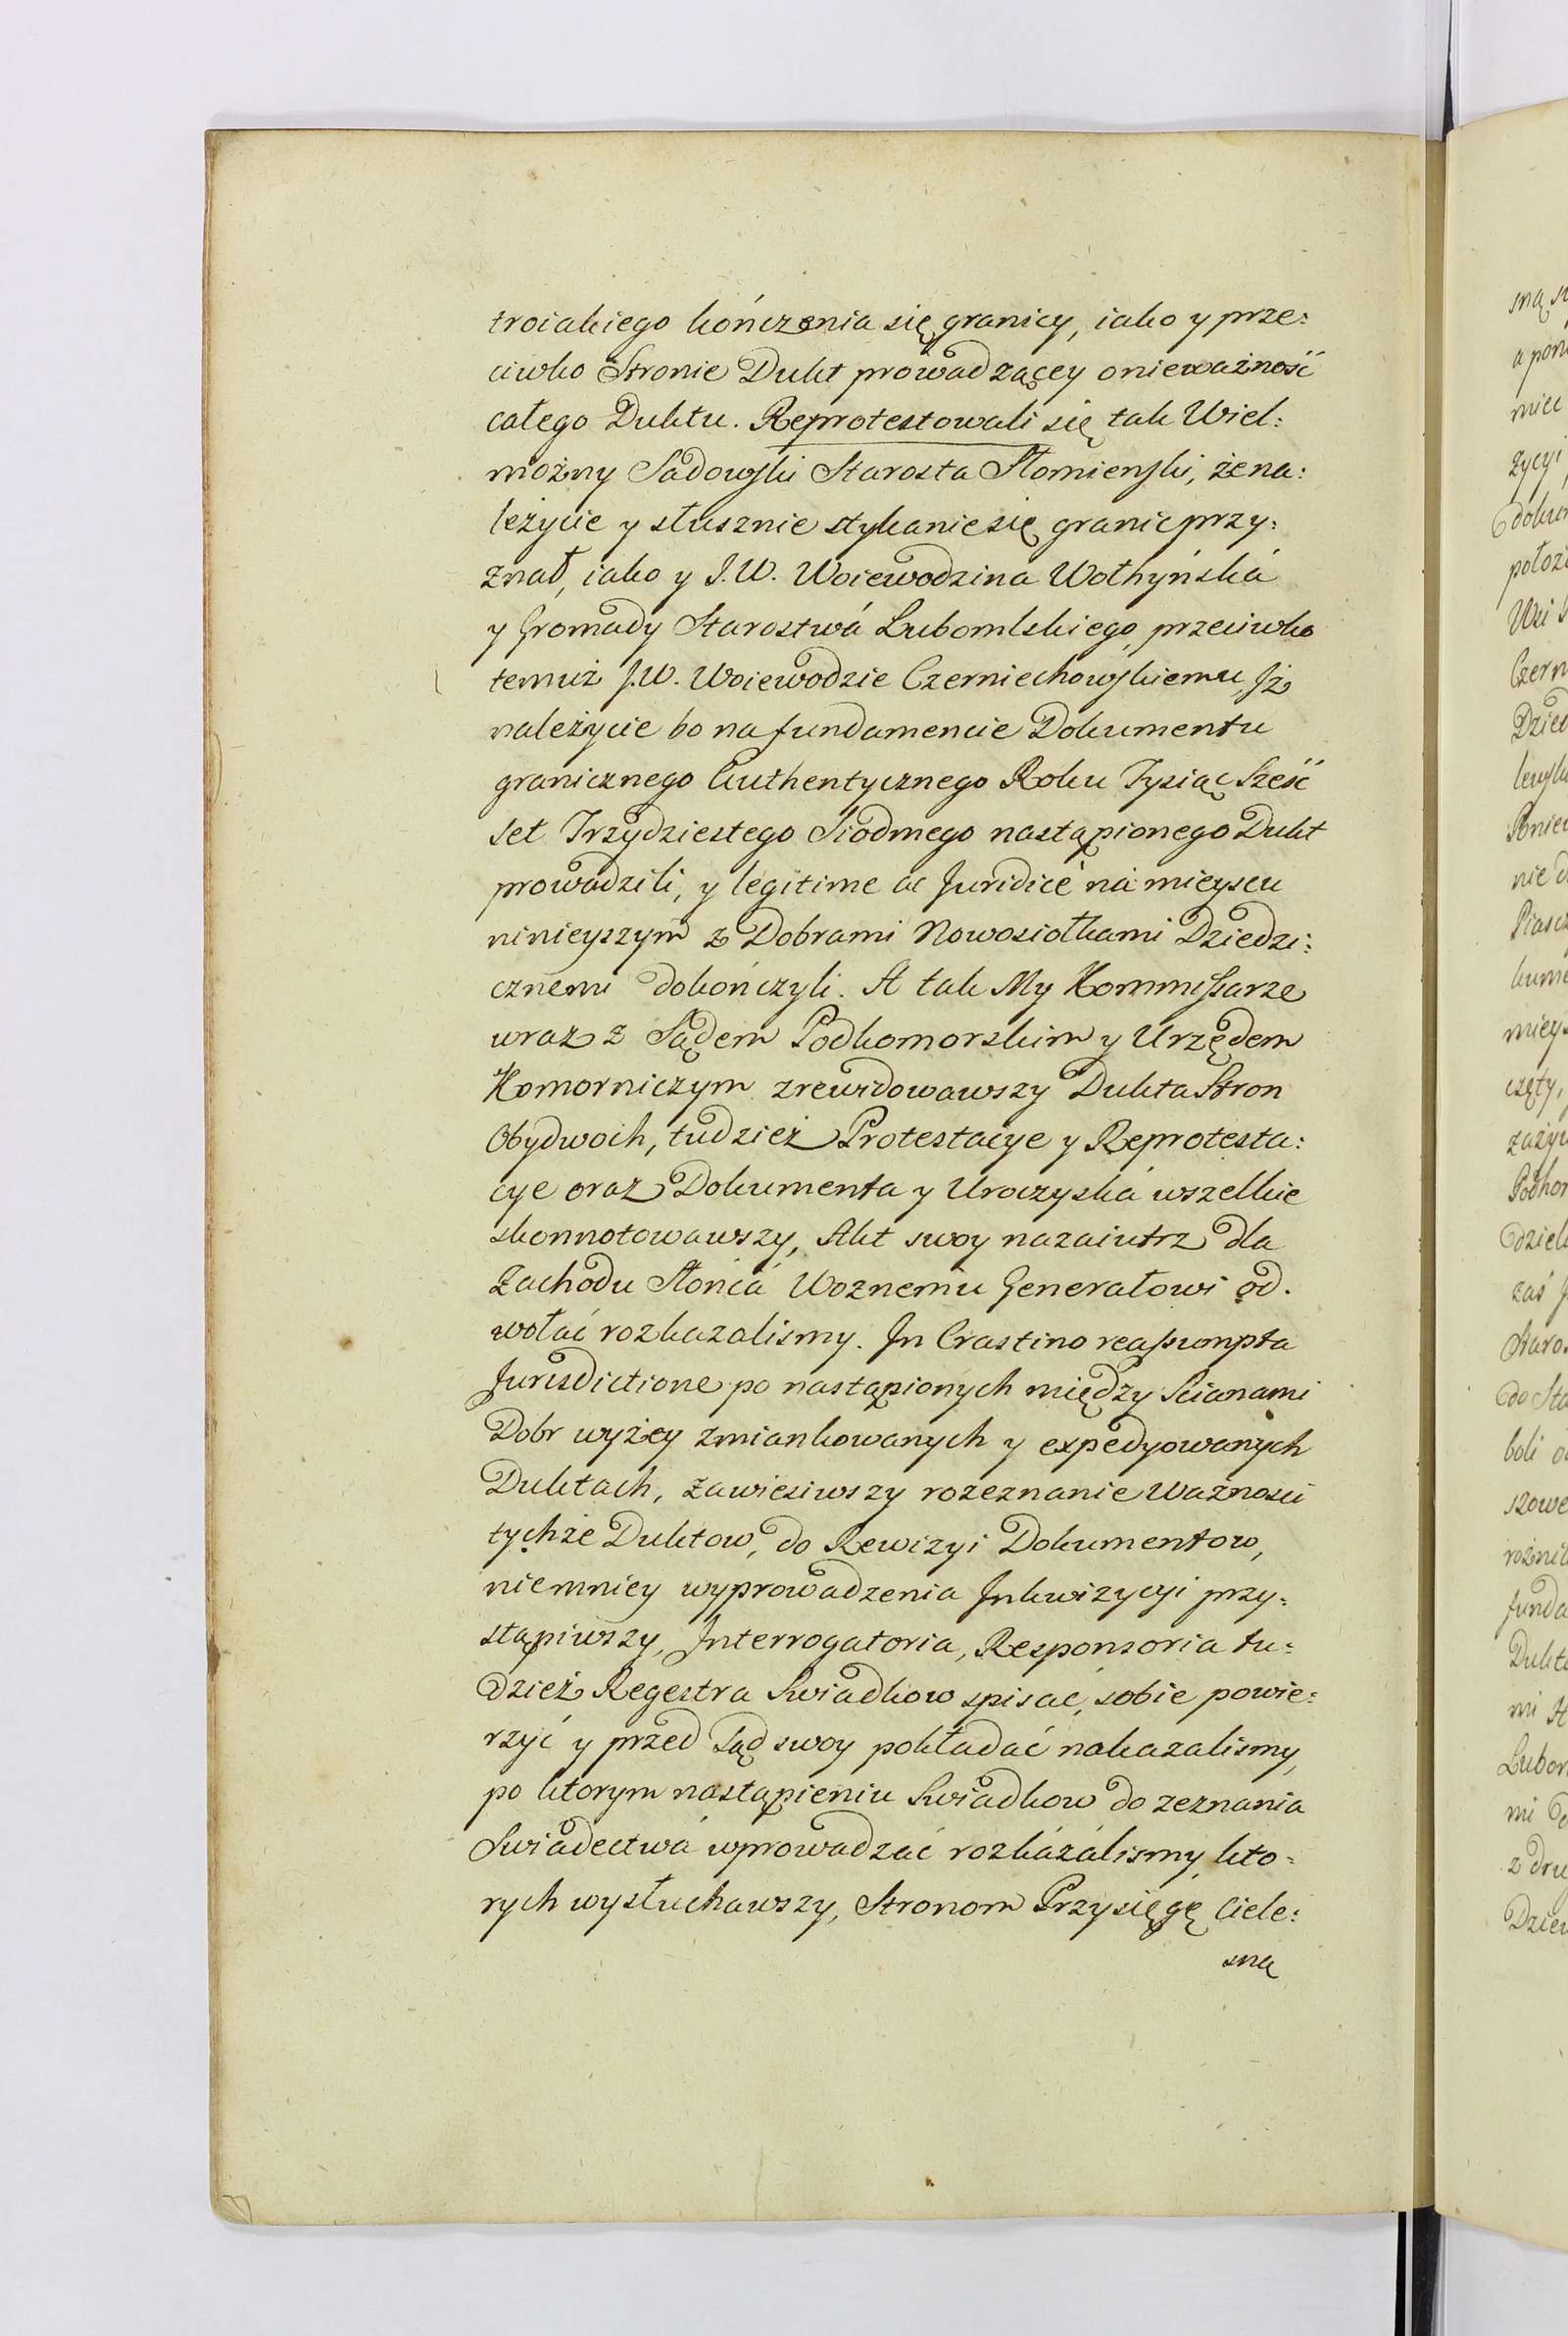 troiakiego kończenia się granicy, iako y prze:
ciwko Stronie Dukt prowadzącey onieważność
całego Duktu. Reprotestowali się tak Wiel:
możny Sadowski Starosta Słomienski, że na:
leżycie y słusznie stykanie się granic przy:
znał, iako y J. W. Woiewodzina Wołhyńská
y Gromady Starostwá Lubomlskiego, przeciwko
temuż J.W. Woiewodzie Czerniechowskiemu, Jż
należycie bo na fundamencie Dokumentu
granicznego Authentycznego Roku Tysiąc Sześć
set Trzydziestego Siodmego nastąpionego Dukt
prowadzili, y legitime ac Juridicè ná mieyscu
ninieyszym z Dobrami Nowosiołkami Dziedzi:
cznemi dokończyli. A tak My Kommissarze
wraz z Sądem Podkomorskim y Urzędem
Komorniczym zrewidowawszy Dukta Stron
Obydwoch, tudzież Protestacye y Reprotesta:
cye oraz Dokumenta y Uroczyská wszelkie
skonnotowawszy, Akt swoy nazaiutrz dla
Zachodu Słońcá Woznemu Generałowi od.
wołać rozkazalismy. Jn Crastino reassumpta
Jurisdictione po nastąpionych między Scianami
Dobr wyżey zmiankowanych y expedyowanych
Duktach, zawiesiwszy rozeznanie Ważnosci
tychże Duktow, do Rewizyi Dokumentow,
niemniey wyprowadzenia Jnkwizycyi przy:
stąpiwszy, Jnterrogatoria, Responsoria tu:
dzież Regestra Swiadkow spisać, sobie powie:
rzyć y przed Sąd swoy pokładać nakazalismy,
po ktorym nastąpieniu Swiadkow do zeznania
Swiadectwá wprowadzać rozkázálismy, kto:
rych wysłuchawszy, Stronom Przysięgę Ciele:
sną